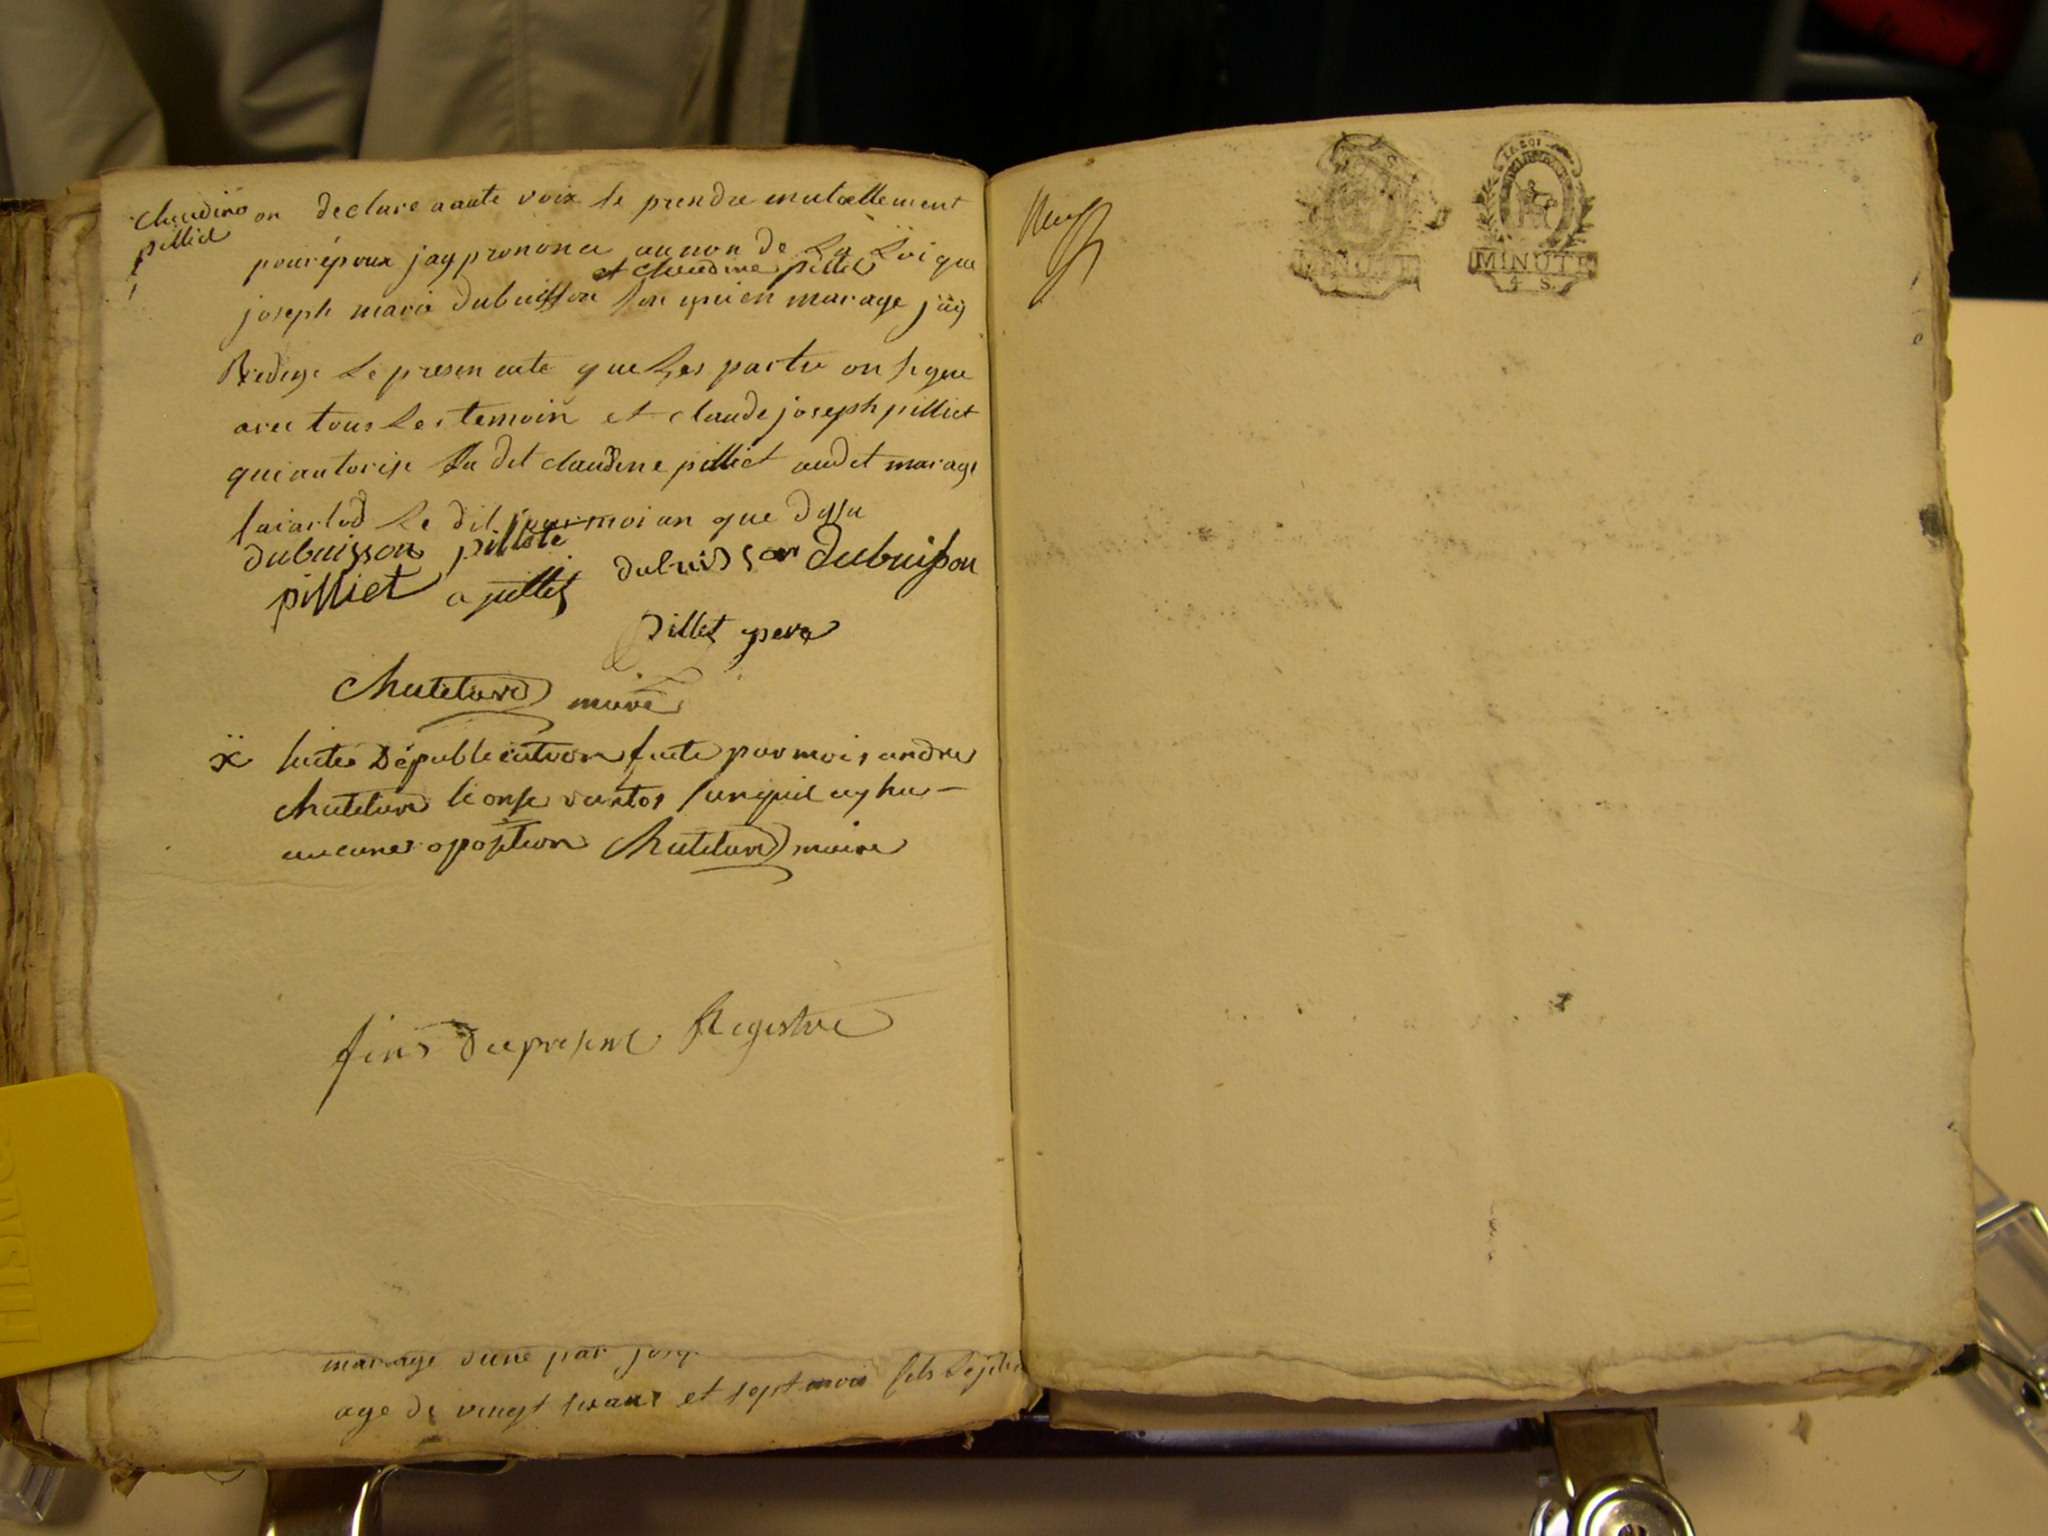 claudine
pilliet
on declare aaute voix se prendre mutuellement
pour époux jay prononcé au non de La Loi que
et claudine pilliet
joseph marie dubuisson son uni en marage jäy
Redige Le presen acte que Les partie on signe
avec tous Les temoin et claude joseph pilliet
qui autorise La dit claudine pilliet audit marage
fai arlod Le dit jour moi an que dessu
dubuisson pilliete
pilliet a pillet dubuisson dubuisson
pillet pere
Chatelard maire
x suite Dépublication faite par moi andre
Chatelard le onse vantos sanquil ay hu
aucune oposition Chatelard maire
fins du present Registre
marage dune par jose
age de vingt six ans et sept mois fils Legiti
MINUTE
MINUTE
4 S.